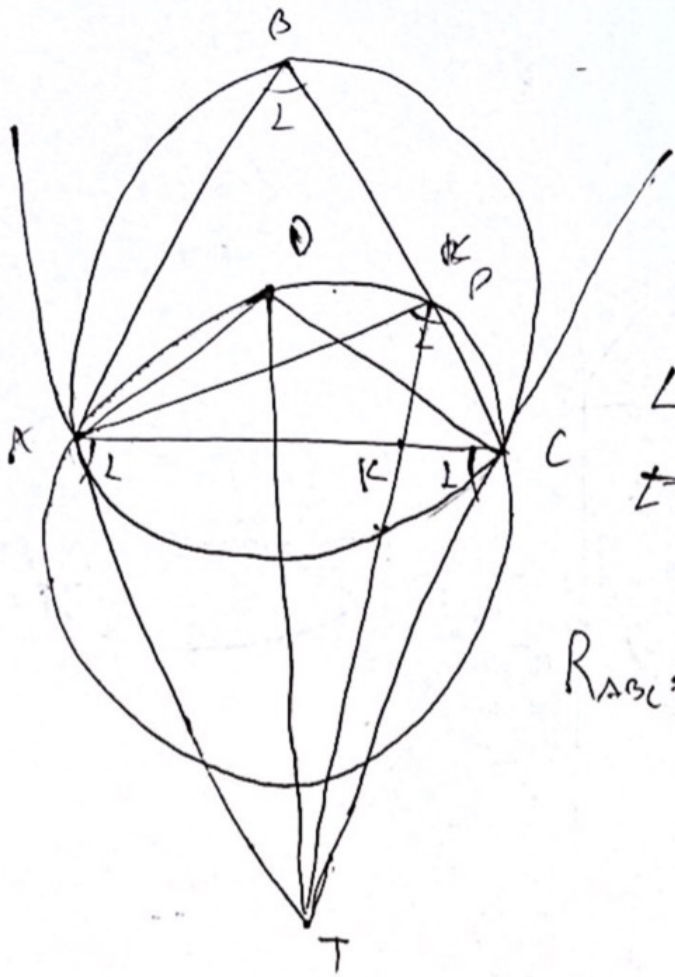 B
L
O
K P
L
A
L
K
L
C
L
t
R_ABC =
T